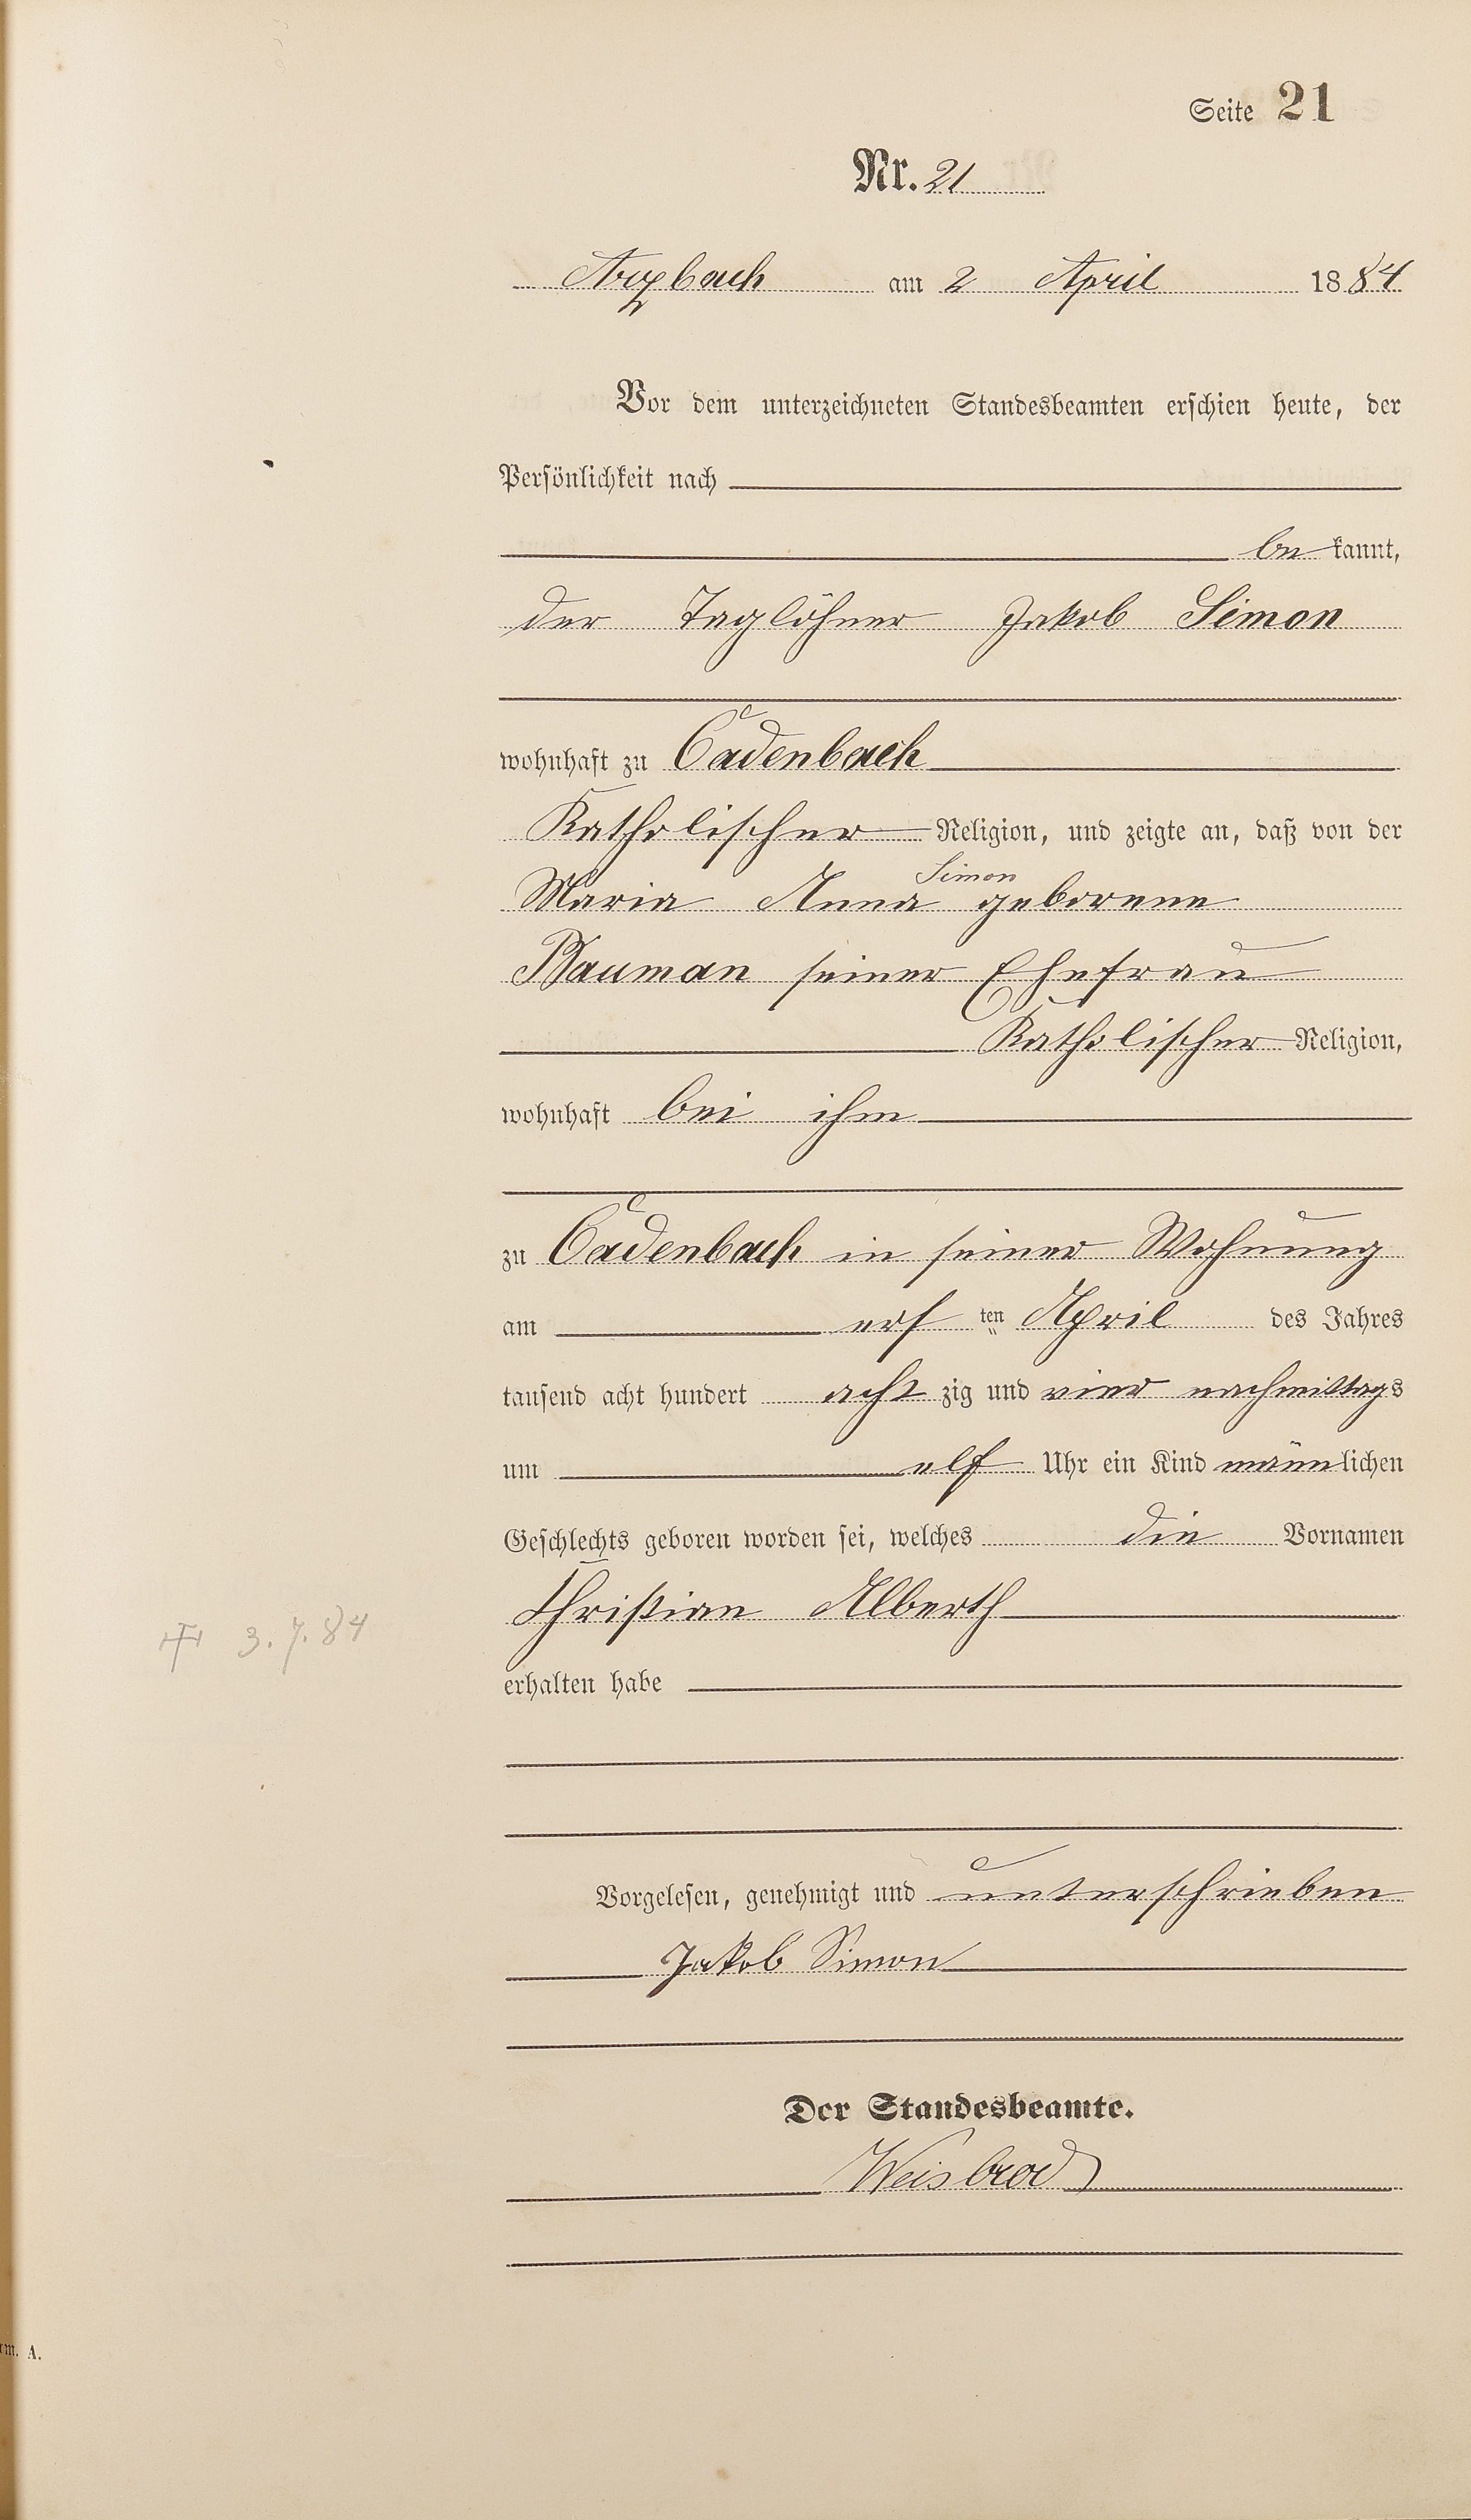 Seite 21
Nr. 21
Arzbach am 2 April 1884
Vor dem unterzeichneten Standesbeamten erschien heute, der
Persönlichkeit nach
be kannt,
der Taglöhner Jakob Simon
wohnhaft zu Cadenbach
Katholischer Religion, und zeigte an, daß von der
Simon
Maria Anna geborene
Bauman seiner Ehefrau
Katholischer Religion,
wohnhaft bei ihm
zu Cadenbach in seiner Wohnung
am ersten April des Jahres
tausend acht hundert acht zig und vier nachmittags
um elf Uhr ein Kind männlichen
Geschlechts geboren worden sei, welches die Vornamen
Christian Alberth
3.7.84
erhalten habe
Vorgelesen, genehmigt und unterschrieben
Jakob Simon
Der Standesbeamte.
Weisbrod
rm. A.